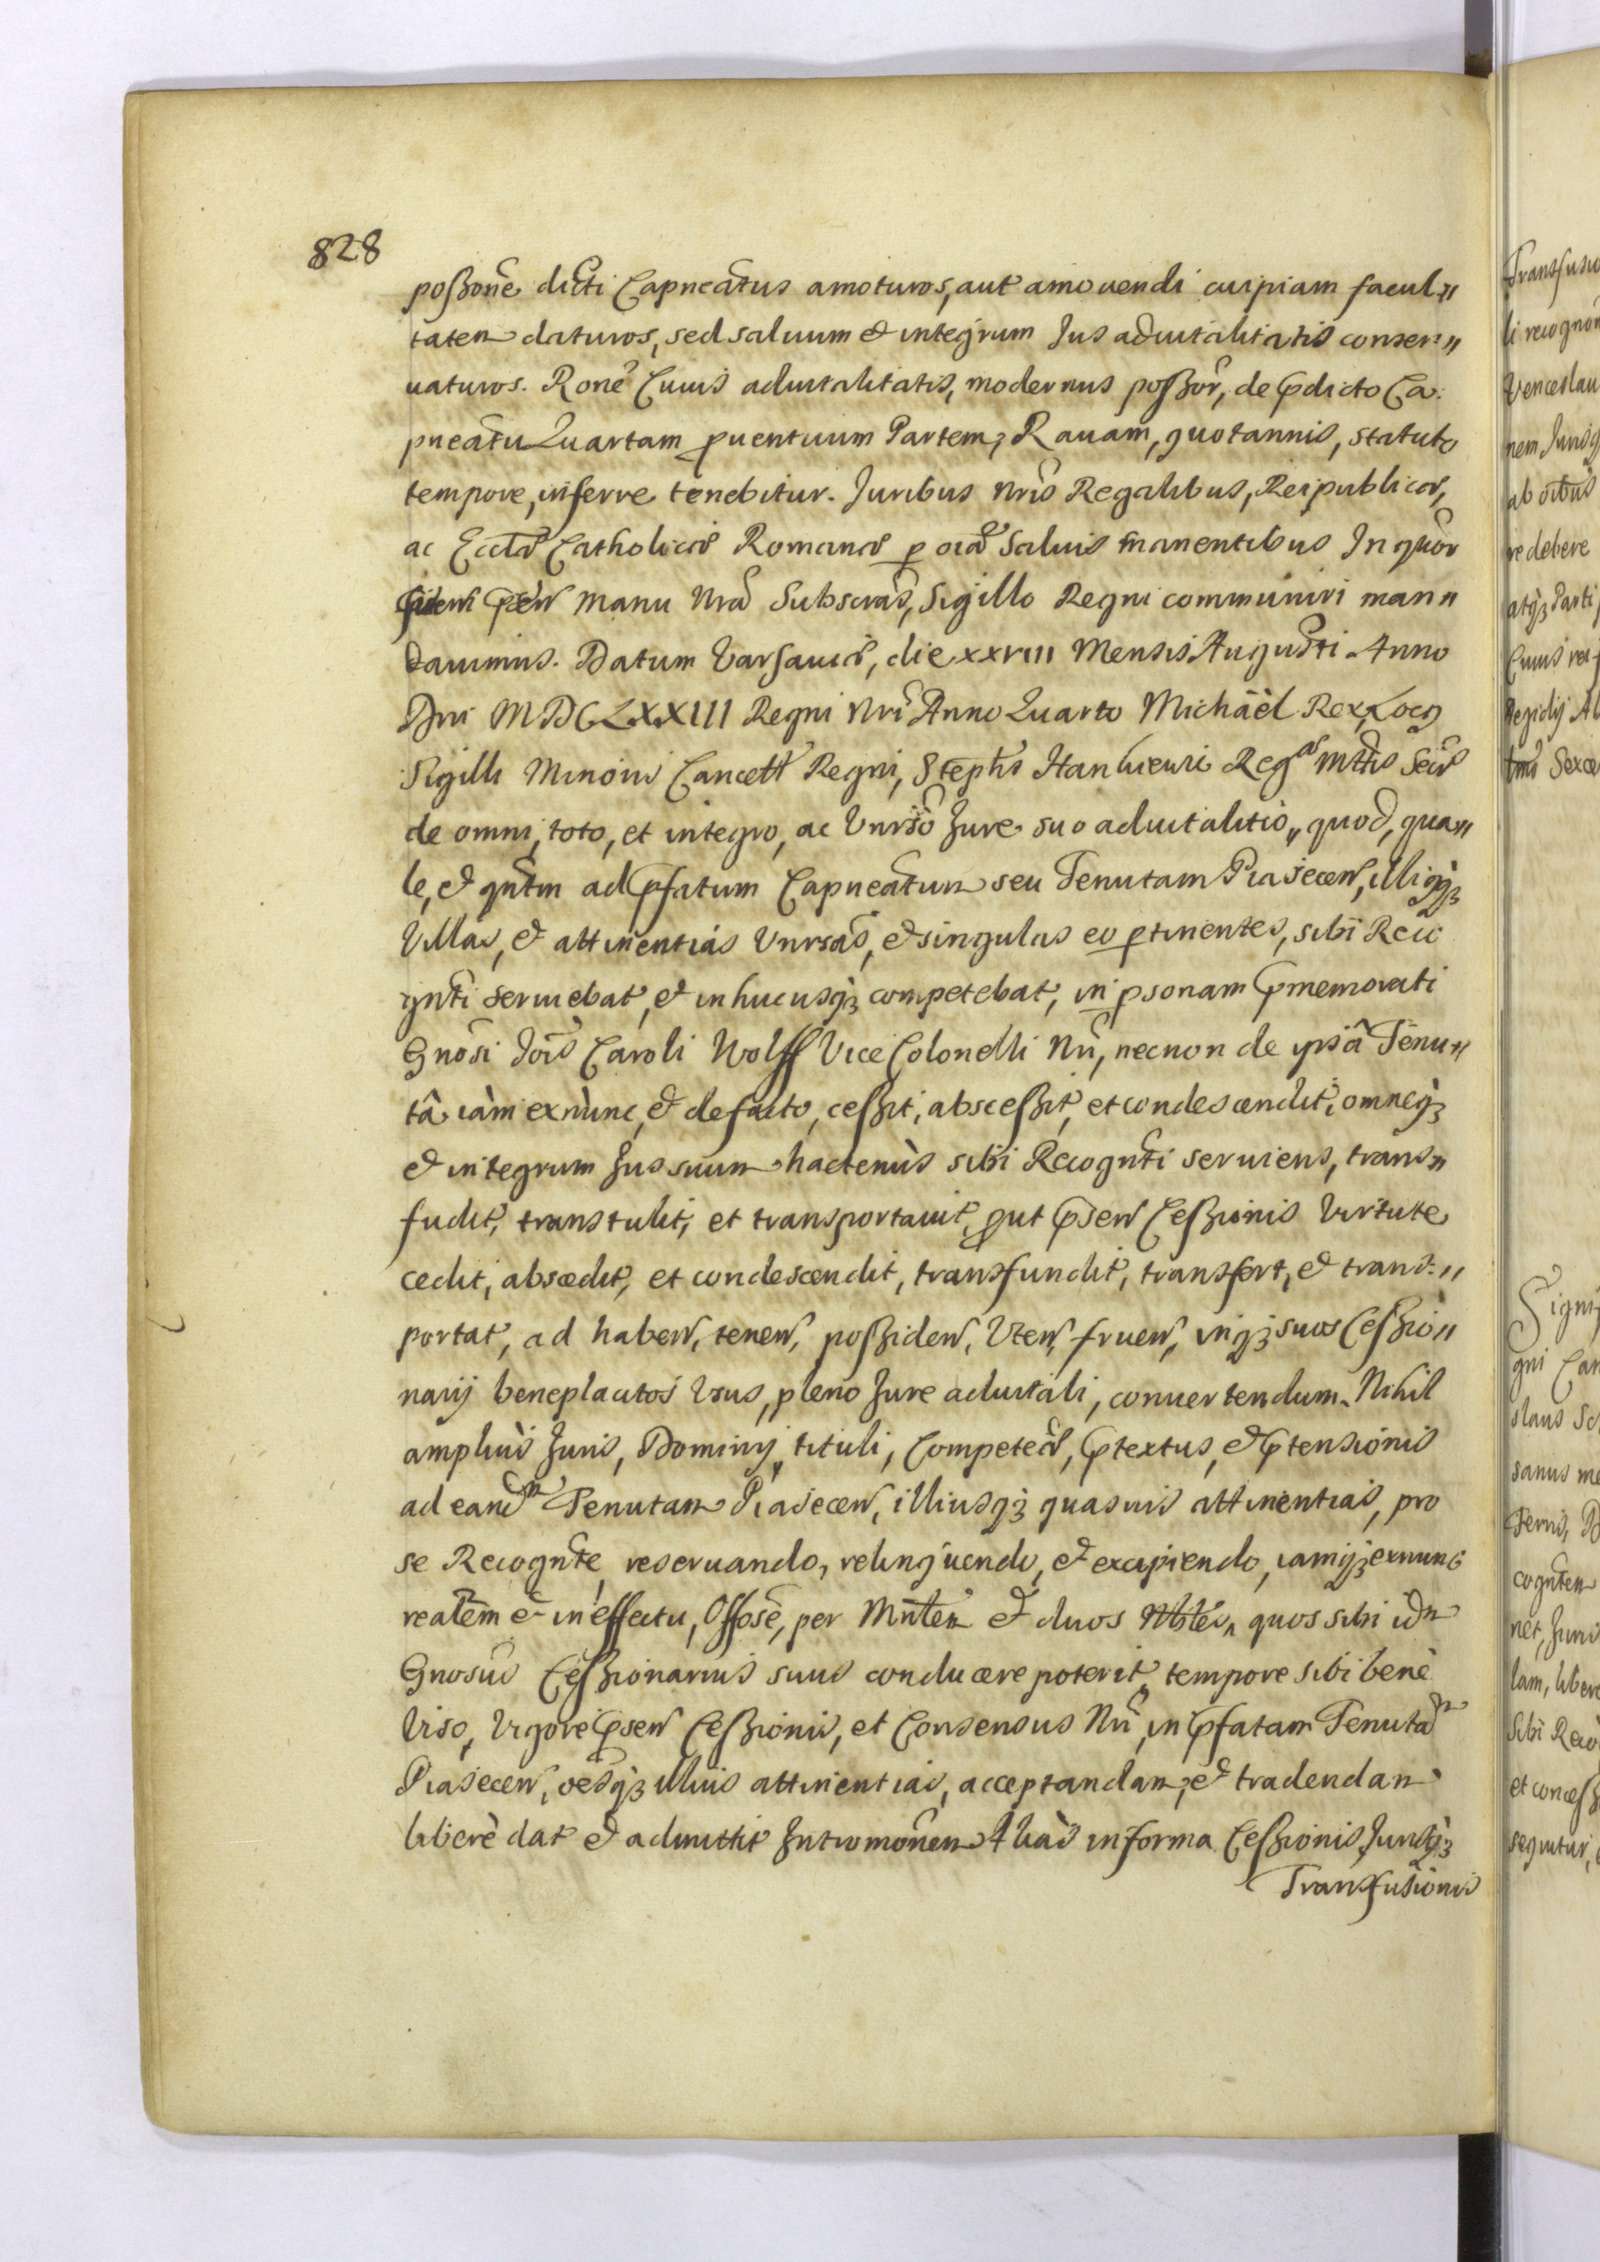 828
poßone dicti Capneatus amoturos, aut amouendi cuipiam facul=
tatem daturos, sed saluum et integrum Jus aduitalitatis conser=
uaturos. Rone Cuius aduitalitatis, modernus poßor, de pdicto Ca:
pneatu Quartam puentuum Partem, Rauam, quotannis, statuto
tempore, inferre tenebitur. Juribus nris Regalibus, Reipublicæ,
ac Eccliæ Catholicæ Romanæ p oia Saluis manentibus In quor
fidem pen manu nra Subscras, Sigillo Regni communiri man=
dauimus. Datum Varsauiæ, die XXVIII Mensis Augusti Anno
Dni MDCLXXIII Regni Nri Anno Quarto Michaël Rex, Locg
Sigilli Minoris Cancell Regni, Stephs Hankieuic Regæ Mttis Secrs
de omni, toto, et integro, ac Vnrso Jure suo aduitalitio, quod, qua=
le, et qntm ad pfatum Capneatum seu Tenutam Piasecen, illigq3
Villas, et attinentias Vnrsas, et singulas eo ptinentes, sibi Reco
gnti seruiebat, et in hucusq3 competebat, in psonam pmemorati
Gnosi Jois Caroli Wolff Vice Colonelli Nri, necnon de ipsâ Tenu=
tâ iàm exnùnc, et defacto, ceßit, absceßit, et condescendit, omneq3
et integrum Jus suum hactenùs sibi Recognti seruiens, trans=
fudit, transtulit, et transportauit, put psen Ceßionis Virtute
cedit, abscedit, et condescendit, transfundit, transfert, et trans=
portat, ad haben, tenen, poßiden, Vten, fruen, inq3 suos Ceßio=
narij beneplacitos Vsus, pleno Jure aduitali, conuertendum. Nihil
ampliùs Juris, Dominij, tituli, Competeæ, ptextus, et ptensionis
ad eandm Tenutam Piasecen, illiusq3 quasuis attinentias, pro
se Recognte, reseruando, relinquendo, et excipiendo, iamq3 exnunc
realem et in effectu, Offose, per Mnlem et duos Nbles, quos sibi idm
Gnosus Ceßionarius suus conducere poterit, tempore sibi benè
Viso, Vigore psen Ceßionis, et Consensus Nri, in pfatam Tenutam
Piasecen, oesq3 illius attinentias, acceptandam, et tradendam
liberè dat et admittit Intromonem Aliàs in forma Ceßionis Jurisq3
Transfusionis